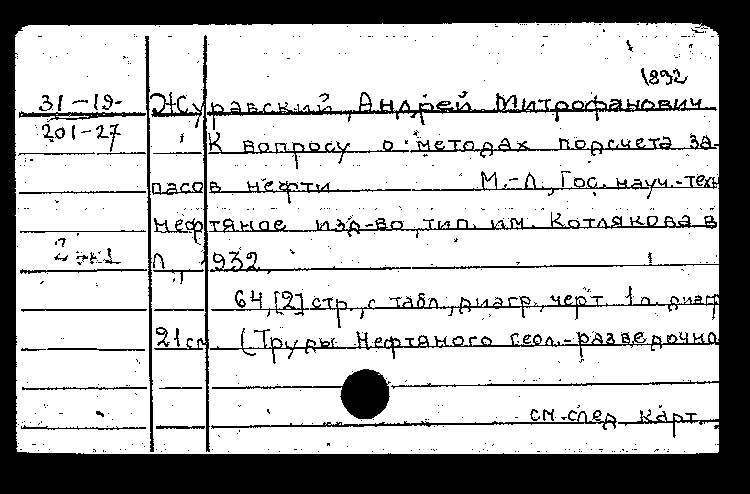 1932
31-19- Журавский, Андрей Митрофанович
201-27 К вопросу о методах подсчета за-
пасов нефти М.-Л., Гос. науч.-техн
нефтяное изд-во, тип. им. Котлякова в
2 экз Л., 1932.
64,[2] стр., с табл., диагр., черт. 1 л. диагр
21 см. (Труды Нефтяного геол.-разведочно
см. след. карт.